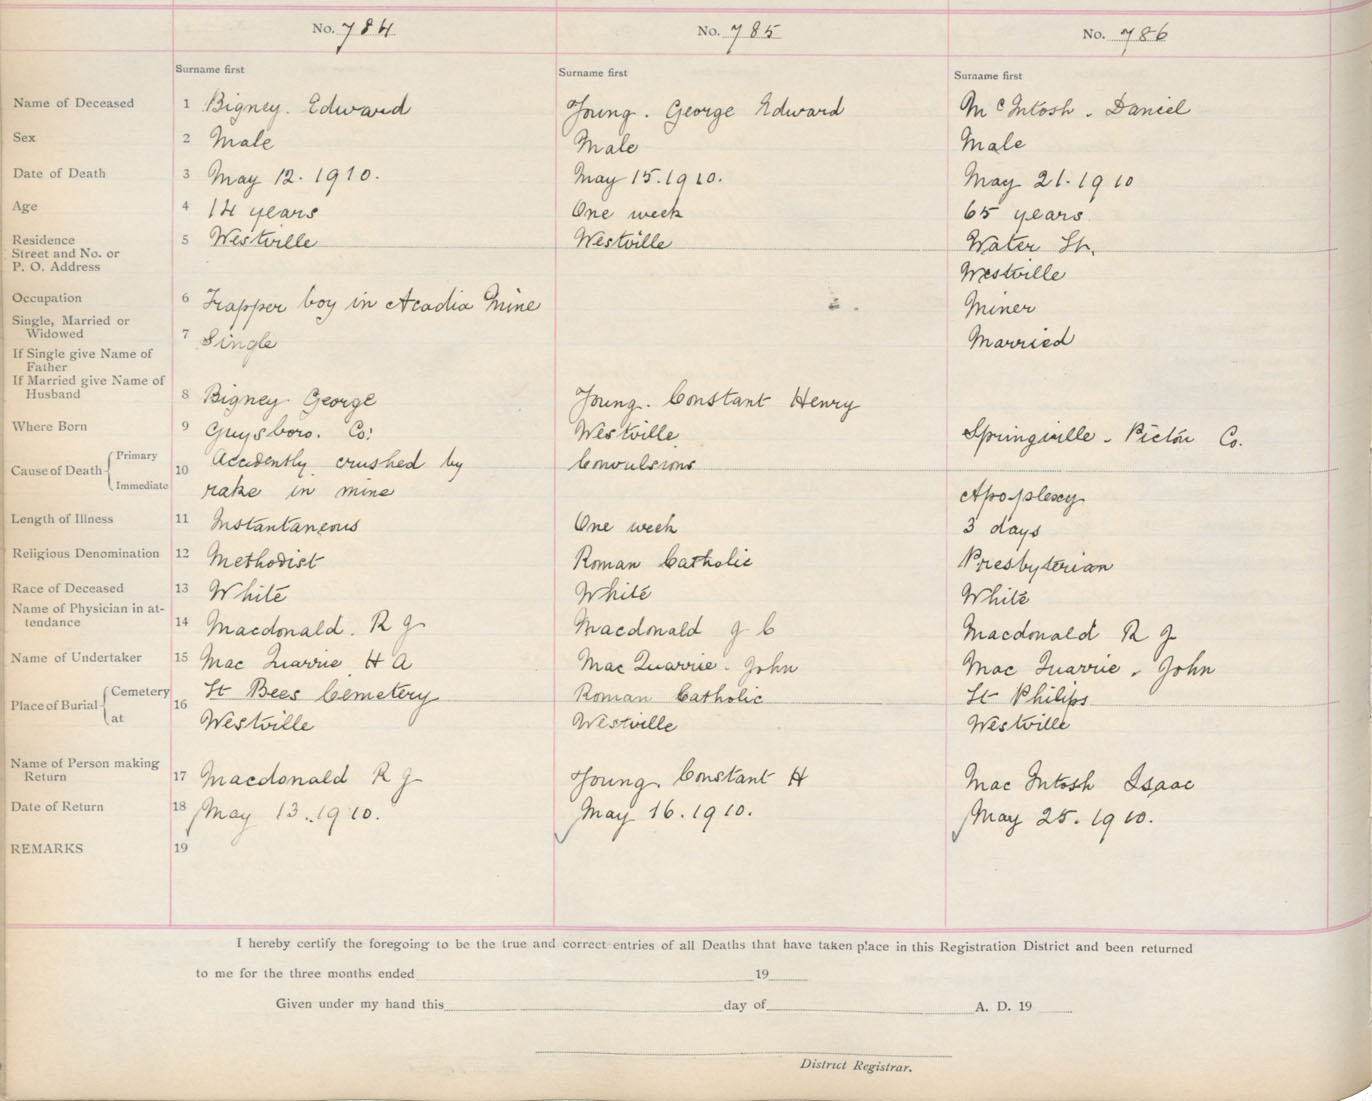 No. 784 No. 785 No. 786
Surname first Surname first Surname first
Name of Deceased 1 Bigney. Edward Young. George Edward McIntosh. Daniel
Sex 2 Male Male Male
Date of Death 3 May 12. 1910. May 15. 1910. May 21. 1910
Age 4 14 years One week 65 years
Residence 5 Westville Westville Water St.
Street and No. or
P. O. Address Westville
Occupation 6 Trapper boy in Acadia Mine Miner
Single, Married or
Widowed 7 Single Married
If Single give Name of
Father
If Married give Name of
Husband 8 Bigney. George Young. Constant Henry
Where Born 9 Guysboro. Co: Westville Springville - Pictou Co.
Cause of Death Primary 10 Accidently crushed by Convulsions
Immediate rake in mine Apoplexy
Length of Illness 11 Instantaneous One week 3 days
Religious Denomination 12 Methodist Roman Catholic Presbyterian
Race of Deceased 13 White White White
Name of Physician in at-
tendance 14 Macdonald. R J Macdonald J C Macdonald R J
Name of Undertaker 15 Mac Quarrie H A Mac Quarrie. John Mac Quarrie. John
Place of Burial Cemetery 16 St Bees Cemetery Roman Catholic St Philips
at Westville Westville Westville
Name of Person making
Return 17 Macdonald R J Young. Constant H Mac Intosh Isaac
Date of Return 18 May 13. 1910. May 16. 1910. May 25. 1910.
REMARKS 19
I hereby certify the foregoing to be the true and correct entries of all Deaths that have taken place in this Registration District and been returned
to me for the three months ended 19
Given under my hand this day of A. D. 19
District Registrar.